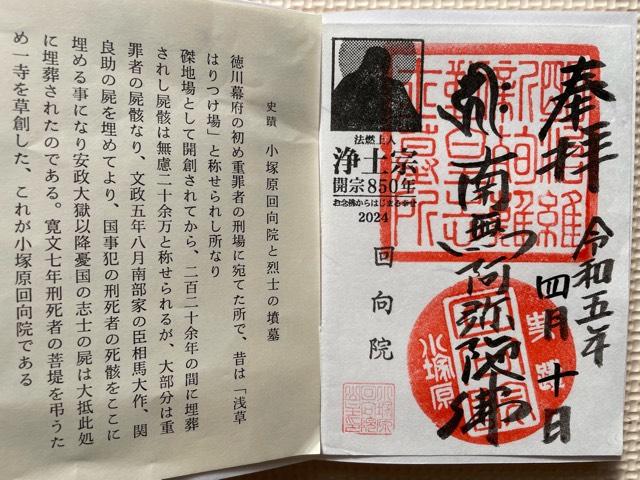 史蹟 小塚原回向院と烈士の墳墓
徳川幕府の初め重罪者の刑場に宛てた所で、昔は「浅草
はりつけ場」と称せられし所なり
磔地場として開創されてから、二百二十余年の間に埋葬
されし屍骸は無慮二十余万と称せられるが、大部分は重
罪者の屍骸なり、文政五年八月南部家の臣相馬大作、関
良助の屍を埋めてより、国事犯の刑死者の死骸をここに
埋める事になり安政大獄以降憂国の志士の屍は大抵此処
に埋葬されたのである。寛文七年刑死者の菩堤を弔うた
め一寺を草創した、これが小塚原回向院である
奉拝
令和五年
四月十日
南無阿弥陀佛
法燃上人
浄土宗
開宗850年
お念佛からはじまる幸せ
2024
回向院
小塚原